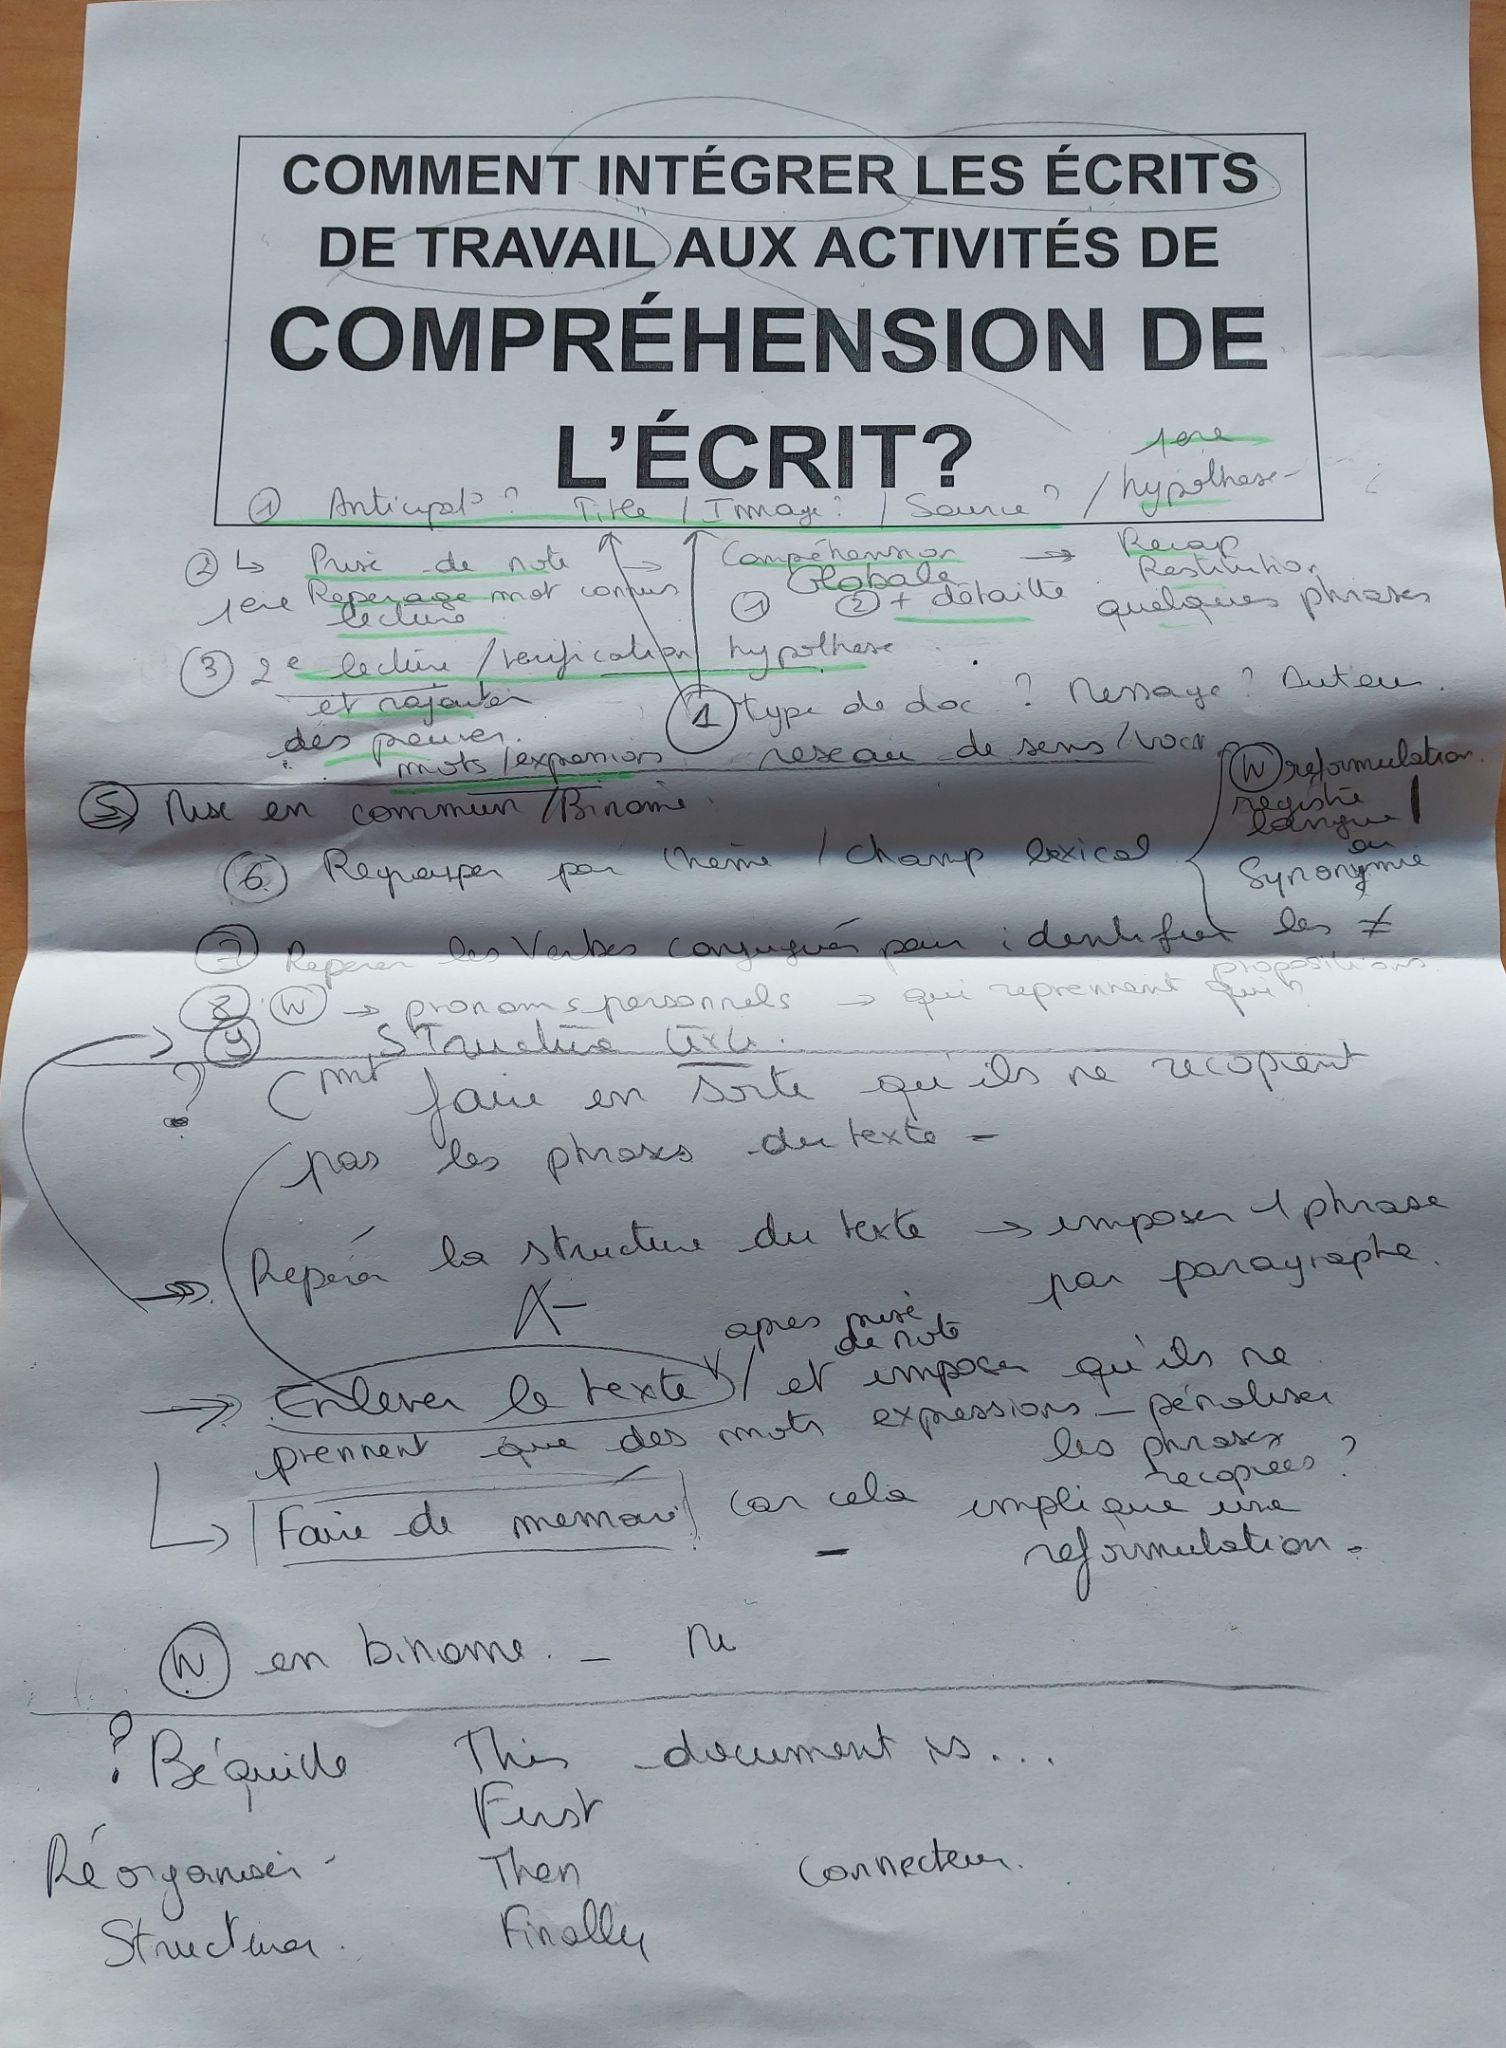 COMMENT INTÉGRER LES ÉCRITS
DE TRAVAIL AUX ACTIVITÉS DE
COMPRÉHENSION DE
L'ÉCRIT?
1ere
① Anticipat° ? Title / Image ? / Source ? / hypothese
② ↳ Prise de note → Compéhension → Recap
Globale Restitution
1ere Reperage mot connus ① ② + détaillé quelques phrases
lecture
③ 2e lecture / verification hypothese
et rajouter
des preuves.
mots / expression
① type de doc ? Message ? Auteur
reseau de sens / voc
⑤ Mise en commun / Binome
⑥ Regrouper par theme / champ lexical
Ⓦ reformulation
registre
langue
ou
Synonymie
⑦ Reperer les Verbes conjugués pour identifier les ≠
propositions
⑧ Ⓦ → pronoms personnels → qui reprennent qui ?
⑨ Structure texte.
? Cmt faire en sorte qu'ils ne recopient
pas les phrases du texte -
Repérer la structure du texte → imposer 1 phrase
par paragraphe.
apres prise
de note
→ Enlever le texte / et imposer qu'ils ne
prennent que des mots expressions - pénaliser
les phrases
recopiées ?
↳ Faire de memoire car cela implique une
reformulation.
Ⓦ en binome. -
? Béquille This document is...
First
Réorganiser - Then Connecteur.
Structurer. Finally